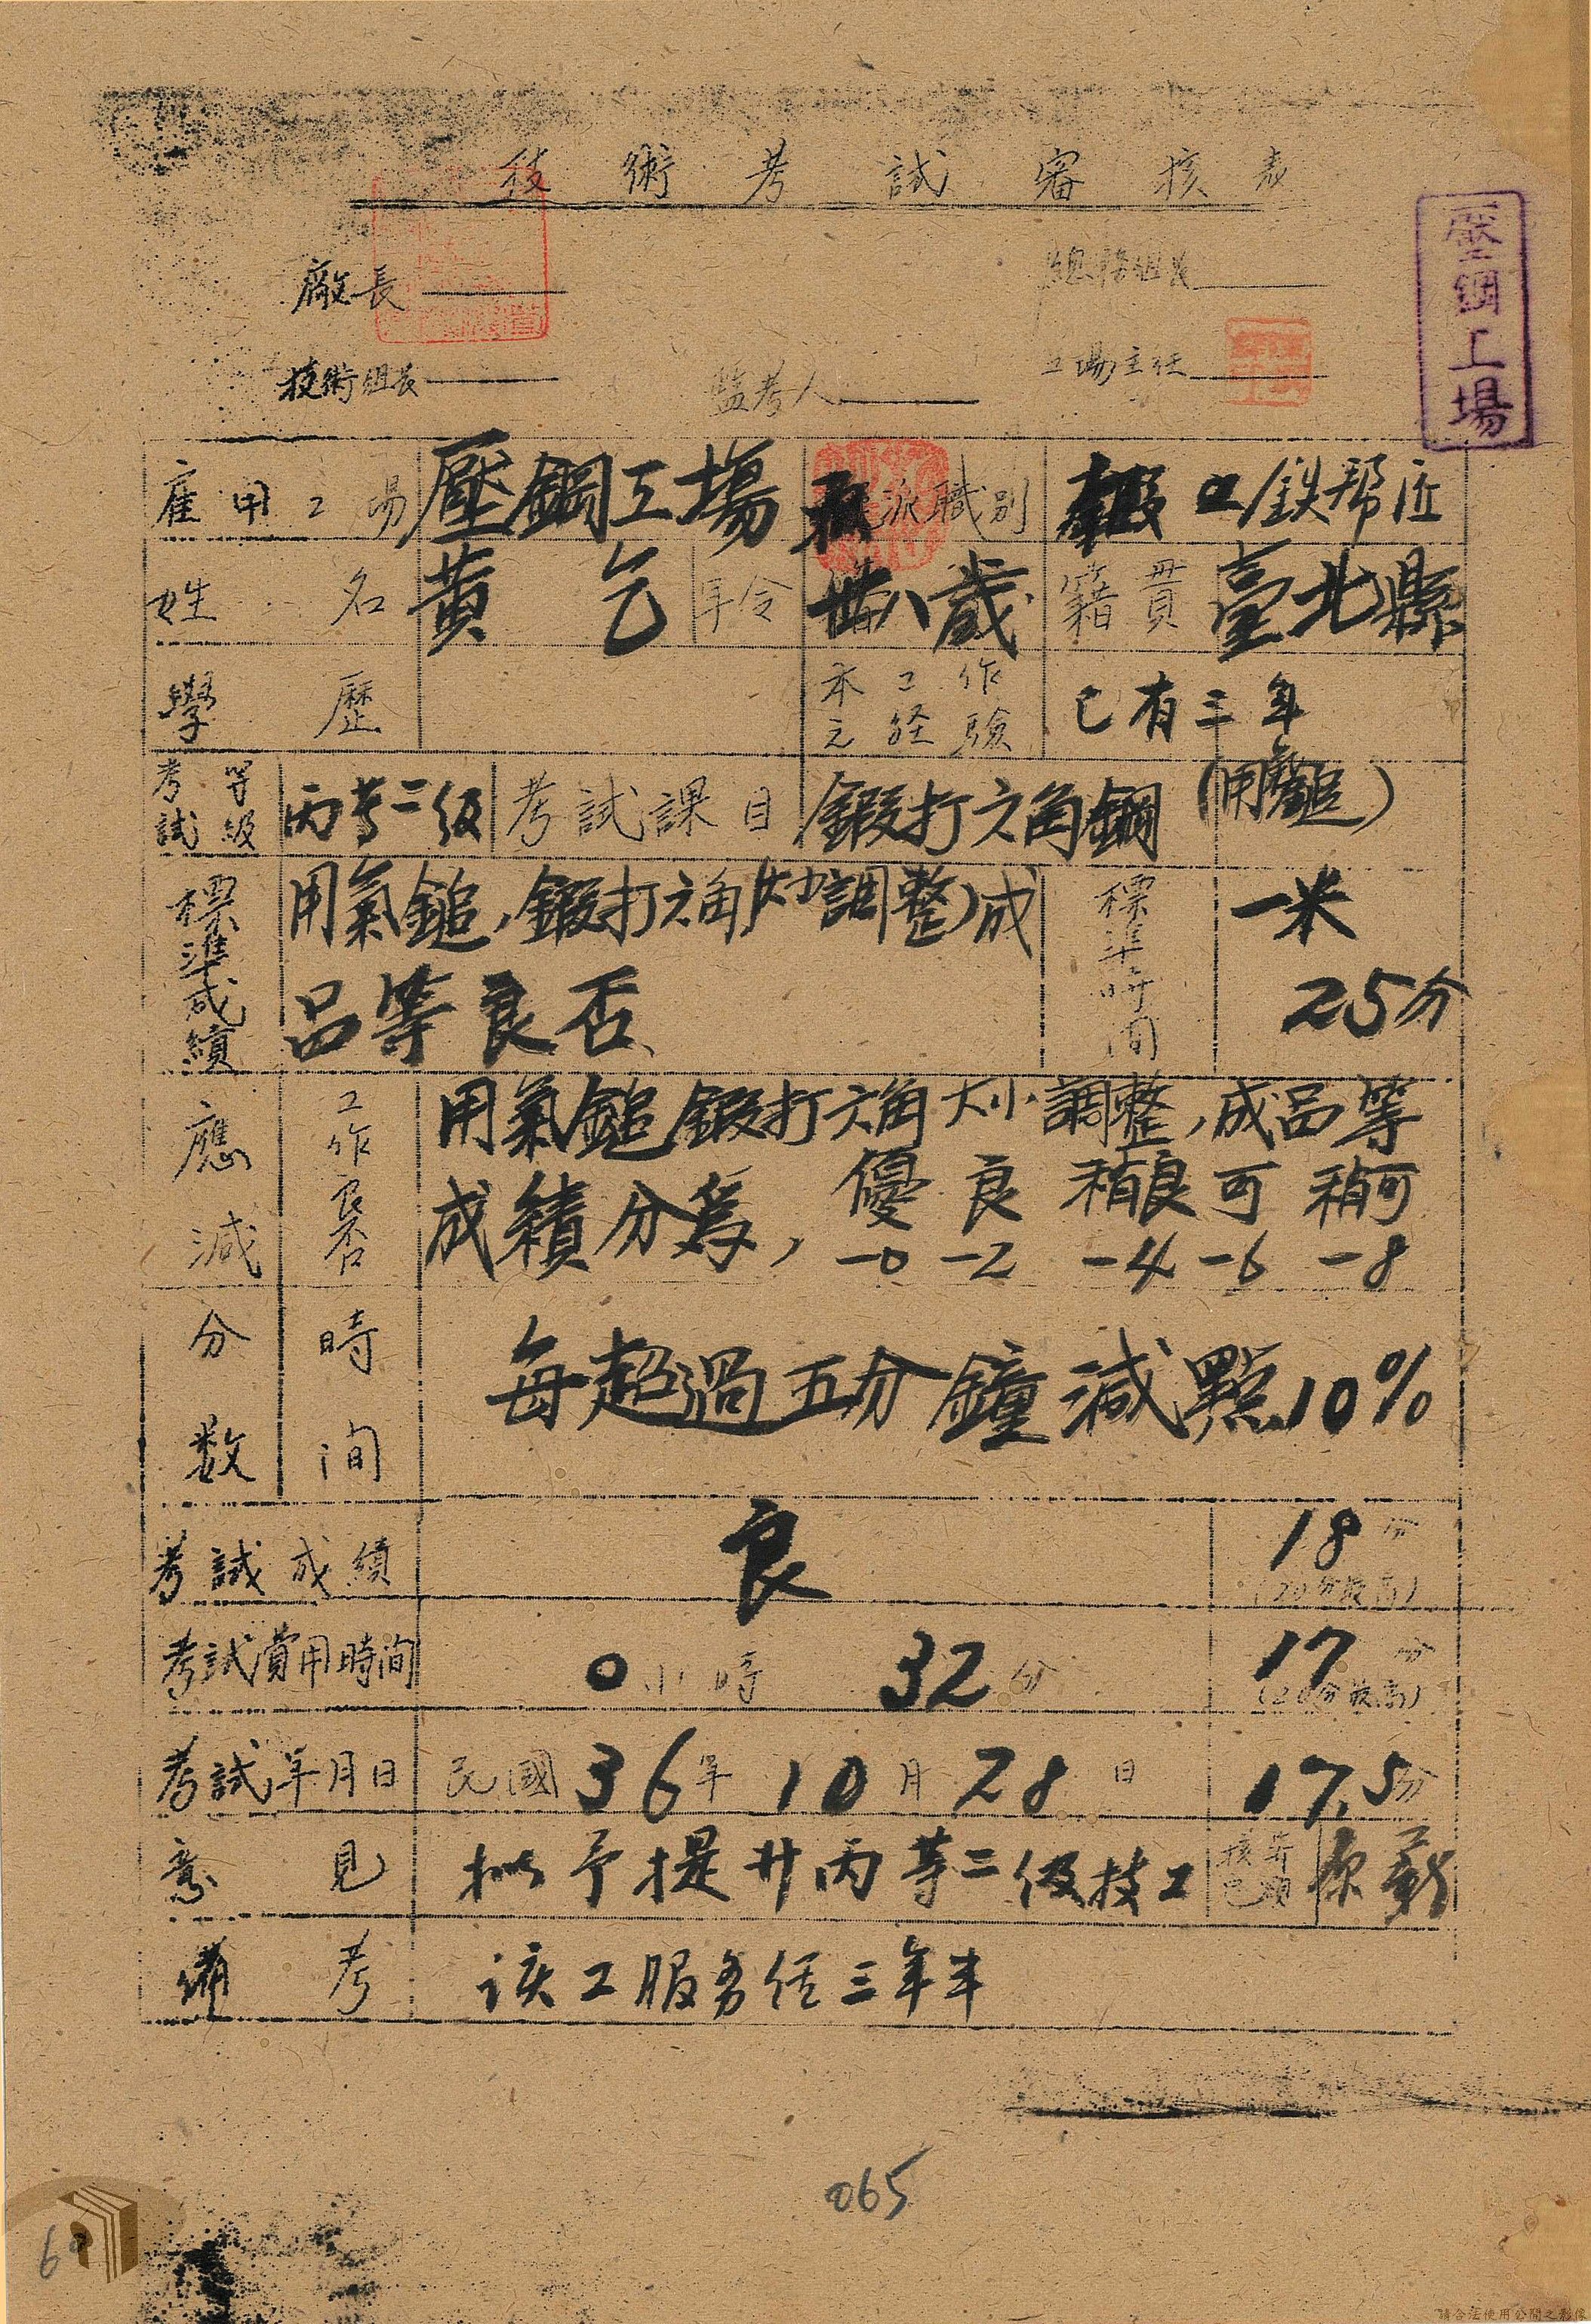 技術考試審核表
壓鋼工場
廠長
總務組長
技術組長
監考人
工場主任
雇用工場 壓鋼工場 派職別 鍛工/鉄幇匠
姓名 黃乞 年令 卅八歲 籍貫 臺北縣
學歷 本工作元経驗 已有三年
考試等級 丙等二級 考試課目 鍛打六角鋼(用氣鎚)
標準成績 用氣鎚,鍛打六角大小調整,成 標準時间 一米
品等良否、 25分
應減分数 工作良否 用氣鎚鍛打六角大小調整,成品等
成績分為, 優 良 稍良 可 稍可
-0 -2 -4 -6 -8
時间 每超過五分鐘減點10%
考試成績 良 18分
(20分最高)
考試費用時间 0小時32分 17分
(20分最高)
考試年月日 民國36年10月28日 17.5分
意見 擬予提升丙等二級技工 原薪
備考 該工服务任三年半
065
請合法使用公開之影像